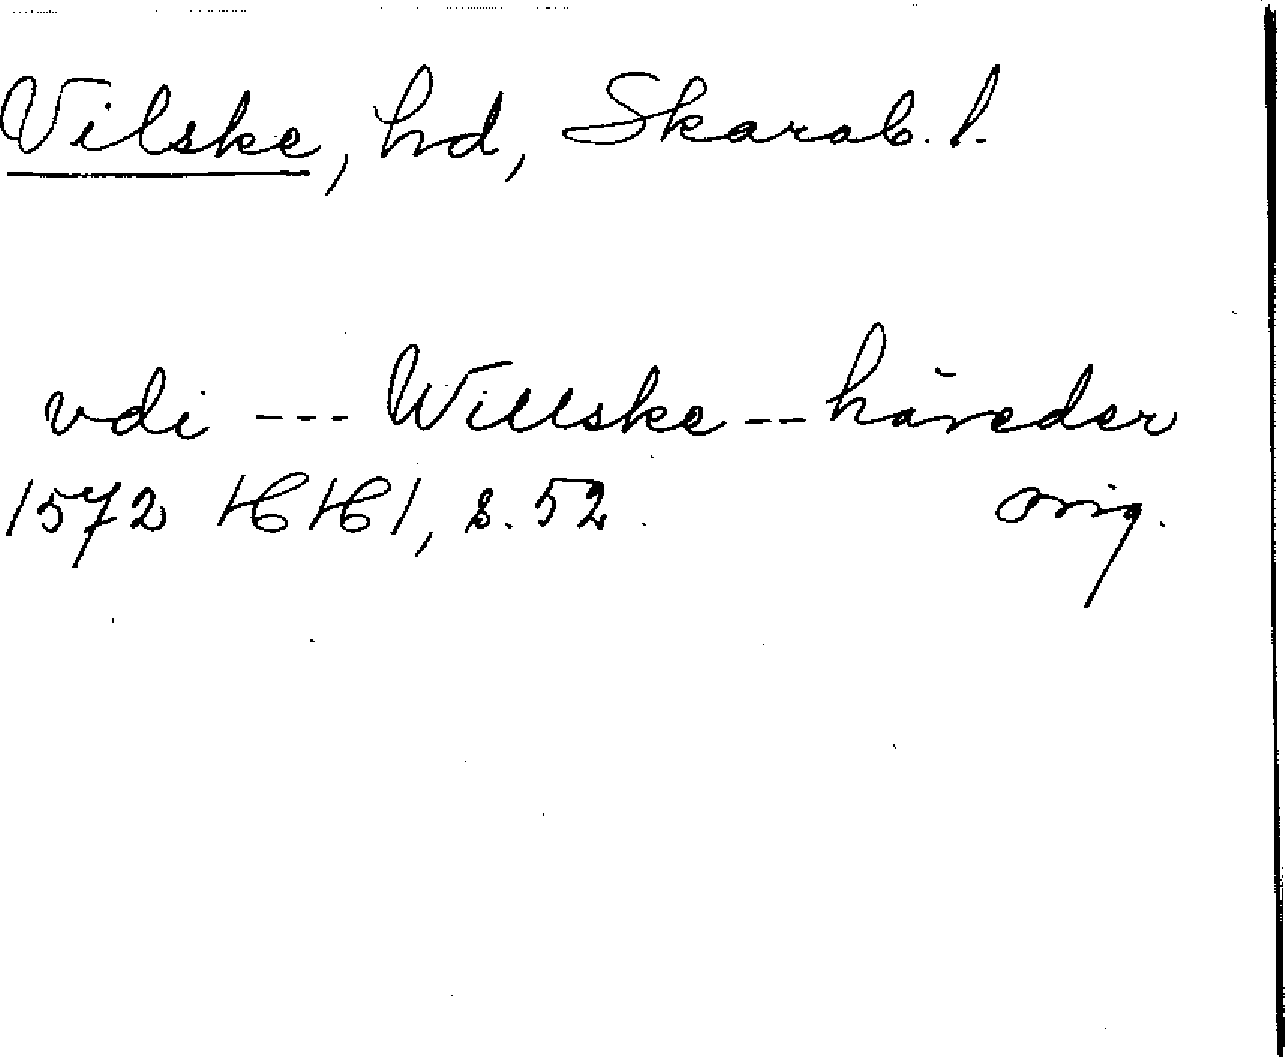 Vilske, hd, Skarab. l.
vdi --- Willske -- häreder
1572 HH 1, s. 52. orig.